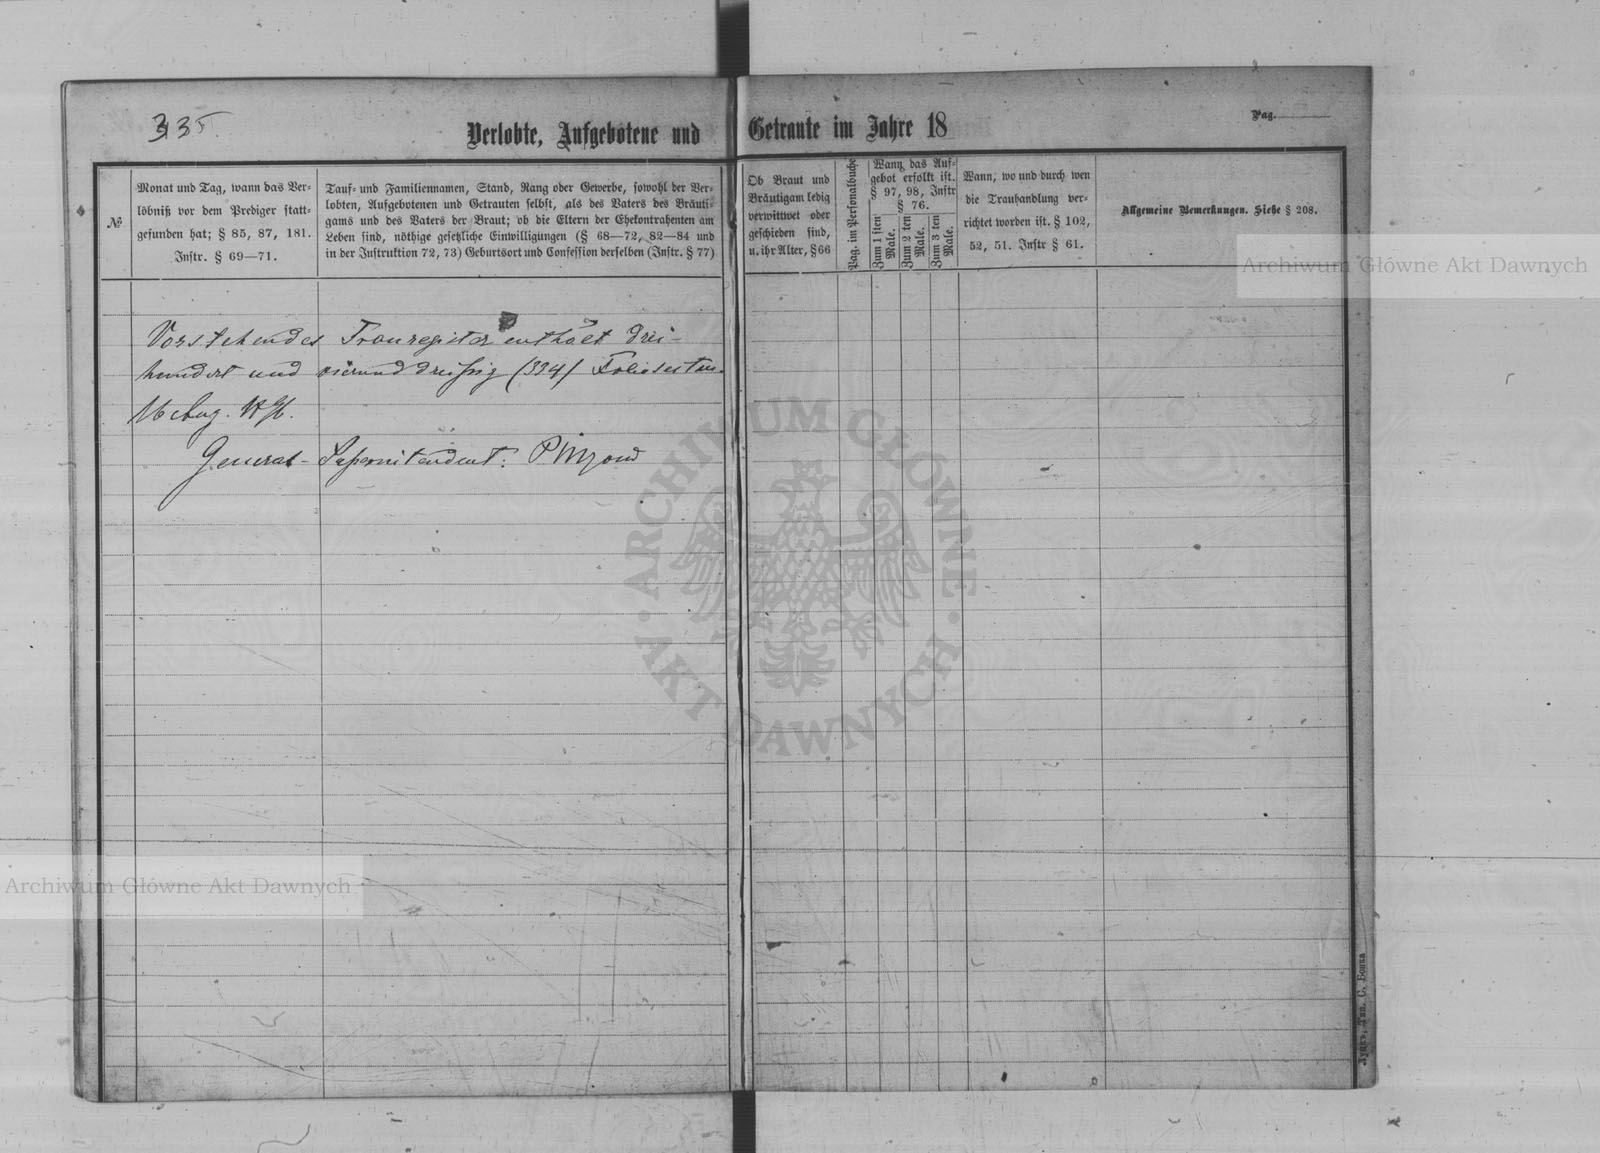 335
Verlobte, Aufgebotene und Getraute im Jahre 18
Pag.
№
Monat und Tag, wann das Ver-
löbniß vor dem Prediger statt-
gefunden hat; § 85, 87, 181.
Instr. § 69—71.
Tauf- und Familiennamen, Stand, Rang oder Gewerbe, sowohl der Ver-
lobten, Aufgebotenen und Getrauten selbst, als des Vaters des Bräuti-
gams und des Vaters der Braut; ob die Eltern der Ehekontrahenten am
Leben sind, nöthige gesetzliche Einwilligungen (§ 68—72, 82—84 und
in der Instruktion 72, 73) Geburtsort und Confession derselben (Instr. § 77)
Ob Braut und
Bräutigam ledig
verwittwet oder
geschieden sind,
u. ihr Alter, § 66
Pag. im Personalbuche
Wann das Auf-
gebot erfolgt ist.
§ 97, 98, Instr
§ 76.
Zum 1 sten
Male.
Zum 2 ten
Male.
Zum 3 ten
Male.
Wann, wo und durch wen
die Trauhandlung ver-
richtet worden ist. § 102,
52, 51. Instr § 61.
Allgemeine Bemerkungen. Siehe § 208.
Vorstehendes Trauregister enthält drei-
hundert und vierunddreißig (334) Folioseiten.
General-Superintendent:
Луцкъ, Тип. С. Бонка
Archiwum Główne Akt Dawnych
Archiwum Główne Akt Dawnych
ARCHIWUM GŁÓWNE · AKT DAWNYCH ·